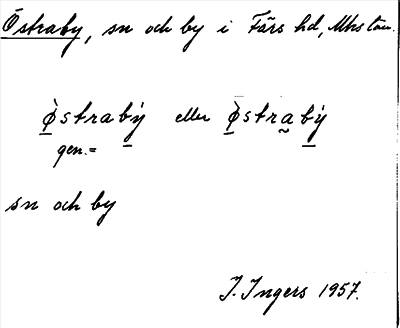 Östraby, sn och by i Färs hd, Mhs län.
ø̀strabý eller ø̀stra̰bý
gen.=
sn och by
I. Ingers 1957.